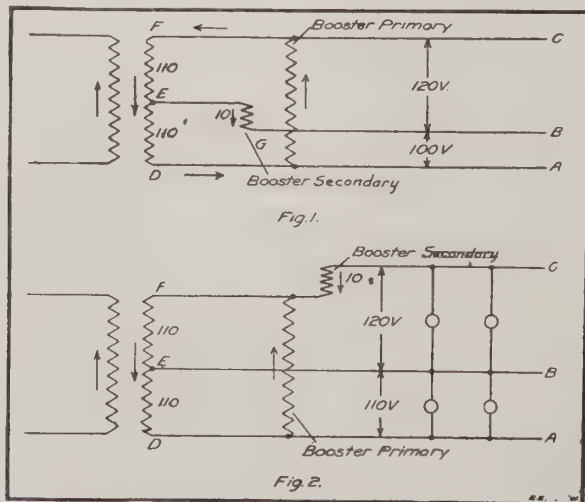 Booster Primary
F
C
110
120V.
E
110
10
B
G
100V
Booster Secondary
D
A
Fig.1.
Booster Secondary
C
10
F
110
120V
E
B
110
110V
D
A
Booster Primary
Fig.2.